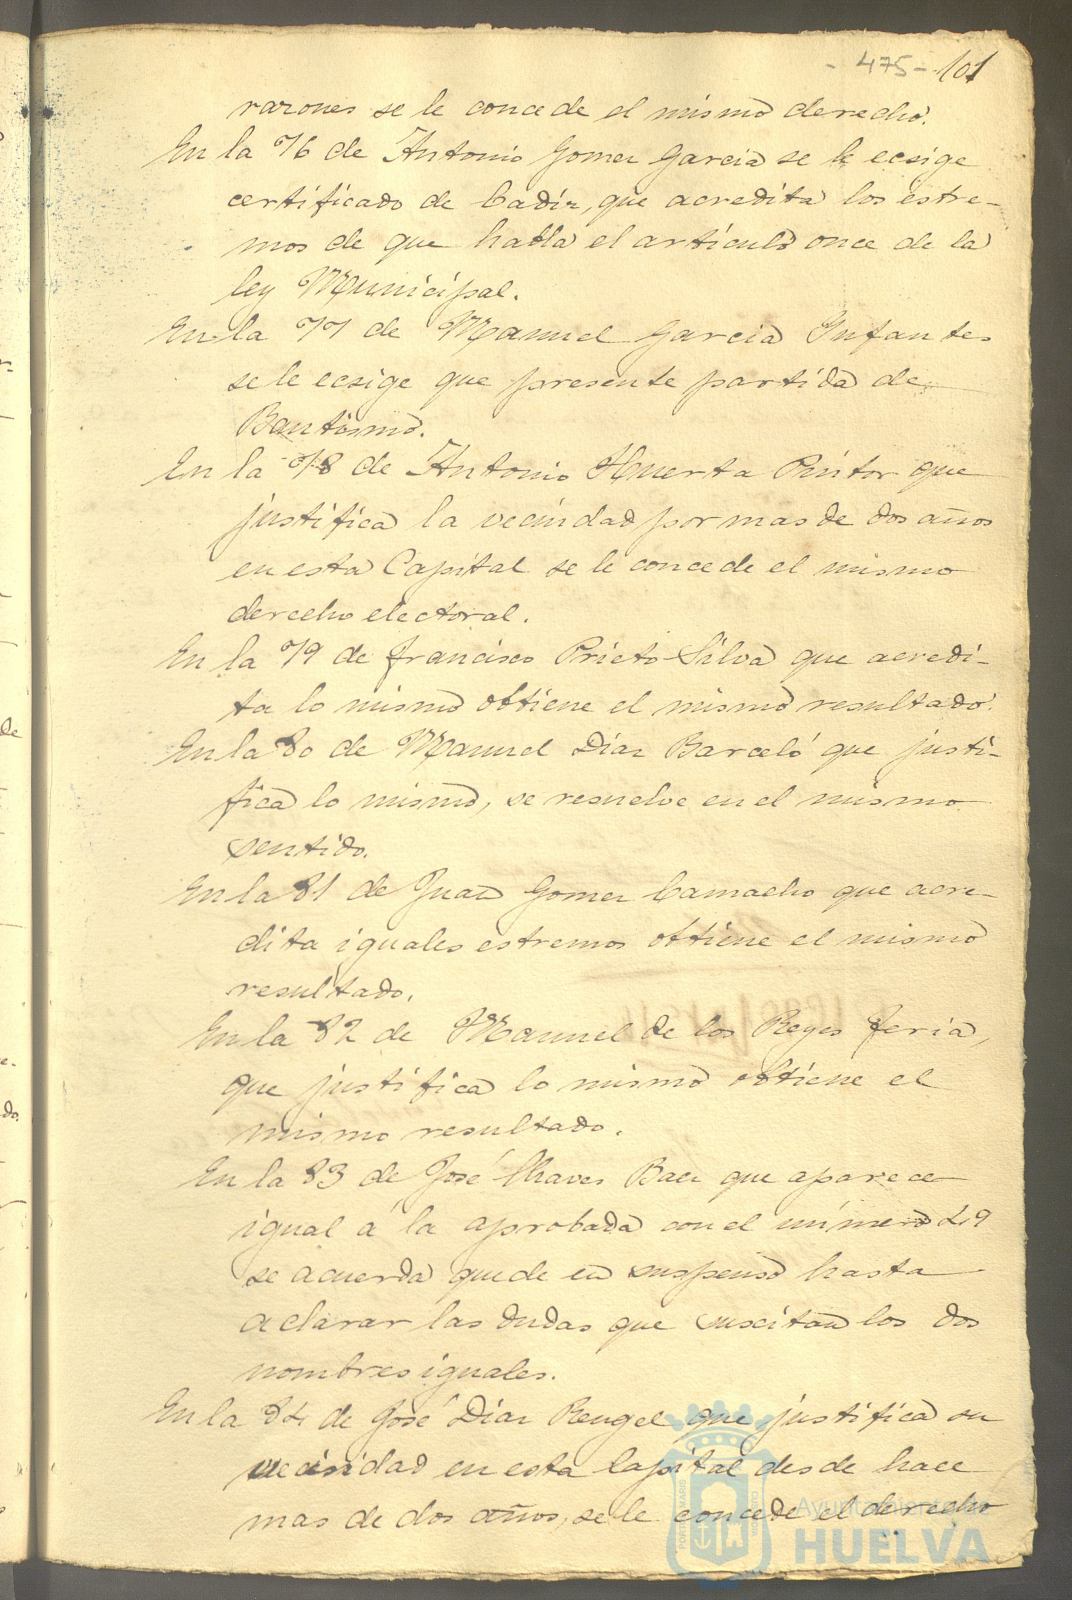 - 475 - 101
razones se le concede el mismo derecho.
En la 76 de Antonio Gomez Garcia se le ecsige
certificado de Cadiz, que acredita los estre-
mos de que habla el articulo once de la
ley Municipal.
En la 77 de Manuel Garcia Infantes
se le ecsige que presente partida de
Bautismo.
En la 78 de Antonio Huerta Pintor que
justifica la vecindad por mas de dos años
en esta Capital se le concede el mismo
derecho electoral.
En la 79 de Francisco Prieto Silva que acredi-
ta lo mismo obtiene el mismo resultado.
En la 80 de Manuel Diaz Barceló que justi-
fica lo mismo, se resuelve en el mismo
sentido.
En la 81 de Juan Gomez Camacho que acre-
dita iguales estremos obtiene el mismo
resultado.
En la 82 de Manuel de los Reyes Feria,
que justifica lo mismo obtiene el
mismo resultado.
En la 83 de José Chaves Baez que aparece
igual a la aprobada con el número 49
se acuerda quede en suspenso hasta
aclarar las dudas que suscitan los dos
nombres iguales.
En la 84 de José Diaz Rengel que justifica su
vecindad en esta Capital desde hace
mas de dos años, se le concede el derecho
Ayuntamiento de
HUELVA